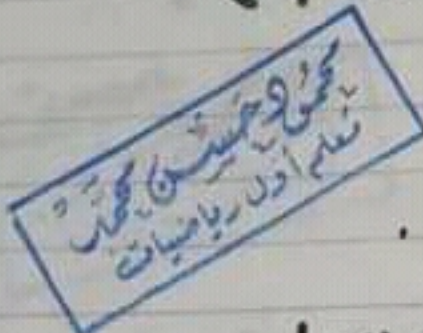 محمود حسين محمد
معلم أول رياضيات